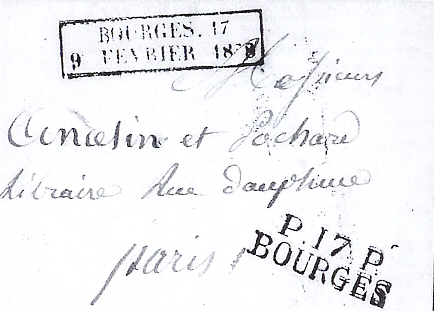 BOURGES. 17
9 FEVRIER 18
Messieurs
et Pochard
Libraire Rue dauphine
paris
P. 17 P.
BOURGES